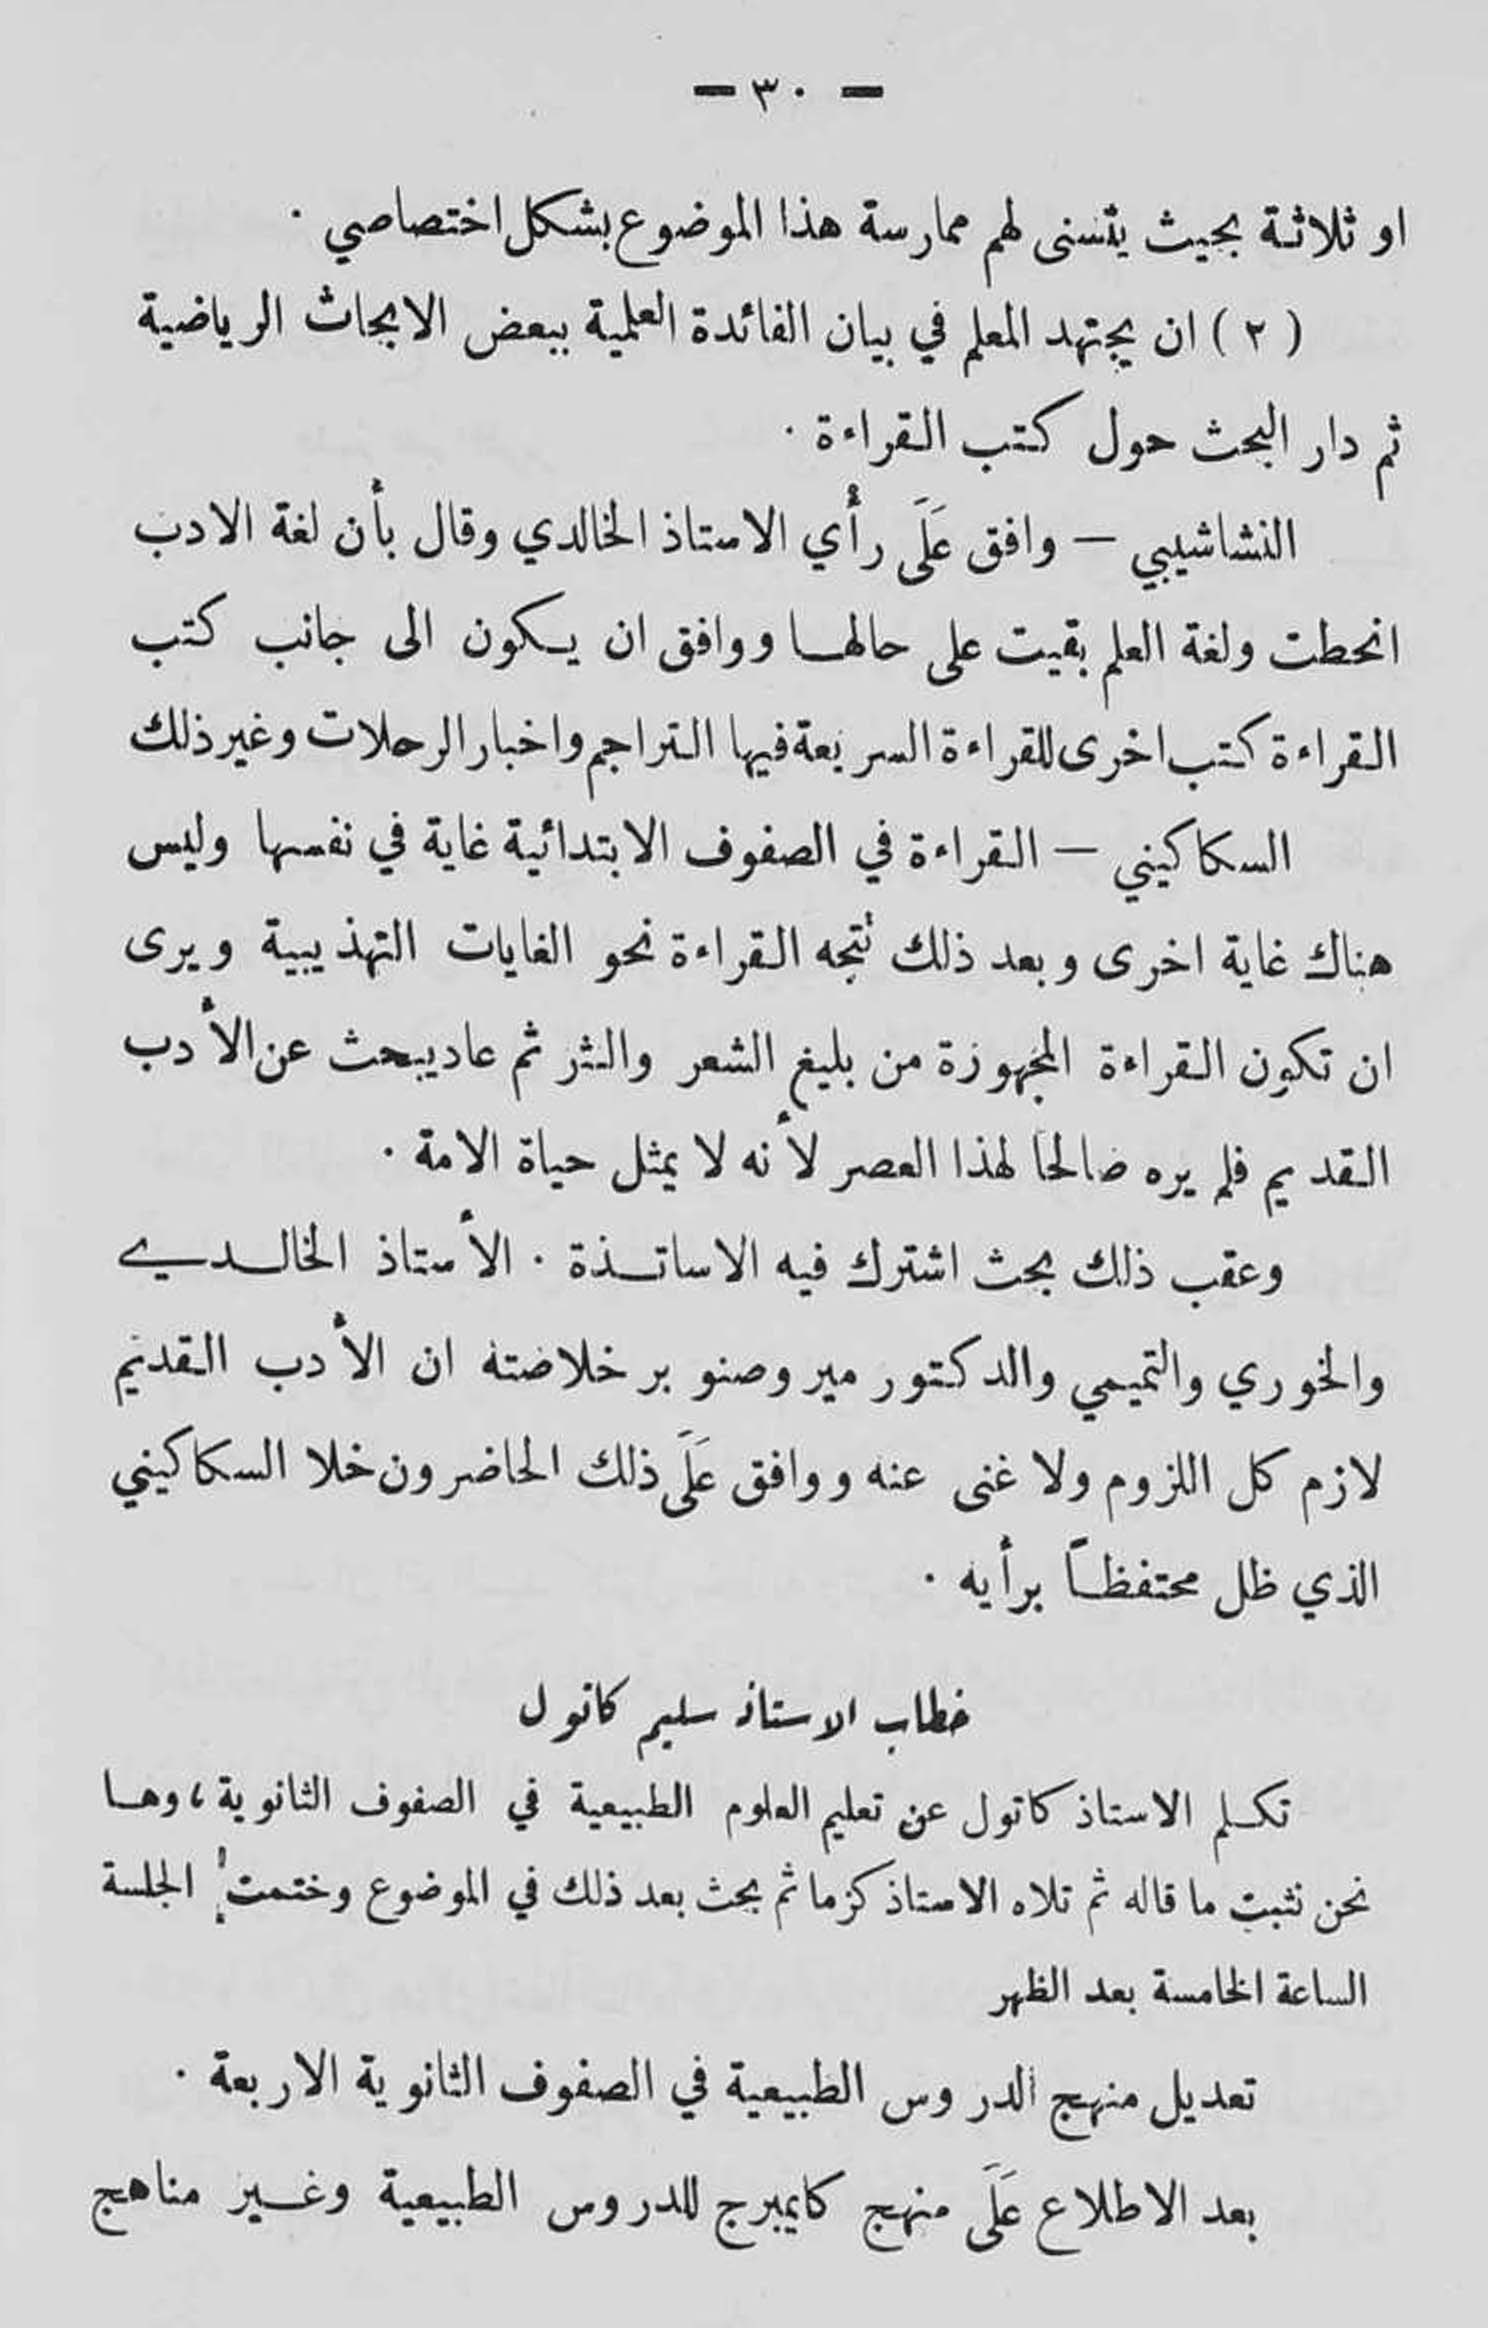 — ٣٠ —
او ثلاثة بحيث يتسنى لهم ممارسة هذا الموضوع بشكل اختصاصي .
( ٢ ) ان يجتهد المعلم في بيان الفائدة العلمية ببعض الابحاث الرياضية
ثم دار البحث حول كتب القراءة .
النشاشيبي — وافق عَلَى رأي الاستاذ الخالدي وقال بأن لغة الادب
انحطت ولغة العلم بقيت على حالها ووافق ان يكون الى جانب كتب
القراءة كتب اخرى للقراءة السريعة فيها التراجم واخبار الرحلات وغير ذلك
السكاكيني — القراءة في الصفوف الابتدائية غاية في نفسها وليس
هناك غاية اخرى وبعد ذلك تتجه القراءة نحو الغايات التهذيبية ويرى
ان تكون القراءة المجهوزة من بليغ الشعر والنثر ثم عاد يبحث عن الأدب
القديم فلم يره صالحا لهذا العصر لأنه لا يمثل حياة الامة .
وعقب ذلك بحث اشترك فيه الاساتذة . الأستاذ الخالدي
والخوري والتميمي والدكتور مير وصنوبر خلاصته ان الأدب القديم
لازم كل اللزوم ولا غنى عنه ووافق عَلَى ذلك الحاضرون خلا السكاكيني
الذي ظل محتفظاً برأيه .
خطاب الاستاذ سليم كاتول
تكلم الاستاذ كاتول عن تعليم العلوم الطبيعية في الصفوف الثانوية ، وها
نحن نثبت ما قاله ثم تلاه الاستاذ كزما ثم بحث بعد ذلك في الموضوع وختمت الجلسة
الساعة الخامسة بعد الظهر
تعديل منهج الدروس الطبيعية في الصفوف الثانوية الاربعة .
بعد الاطلاع عَلَى منهج كايمبرج للدروس الطبيعية وغير مناهج